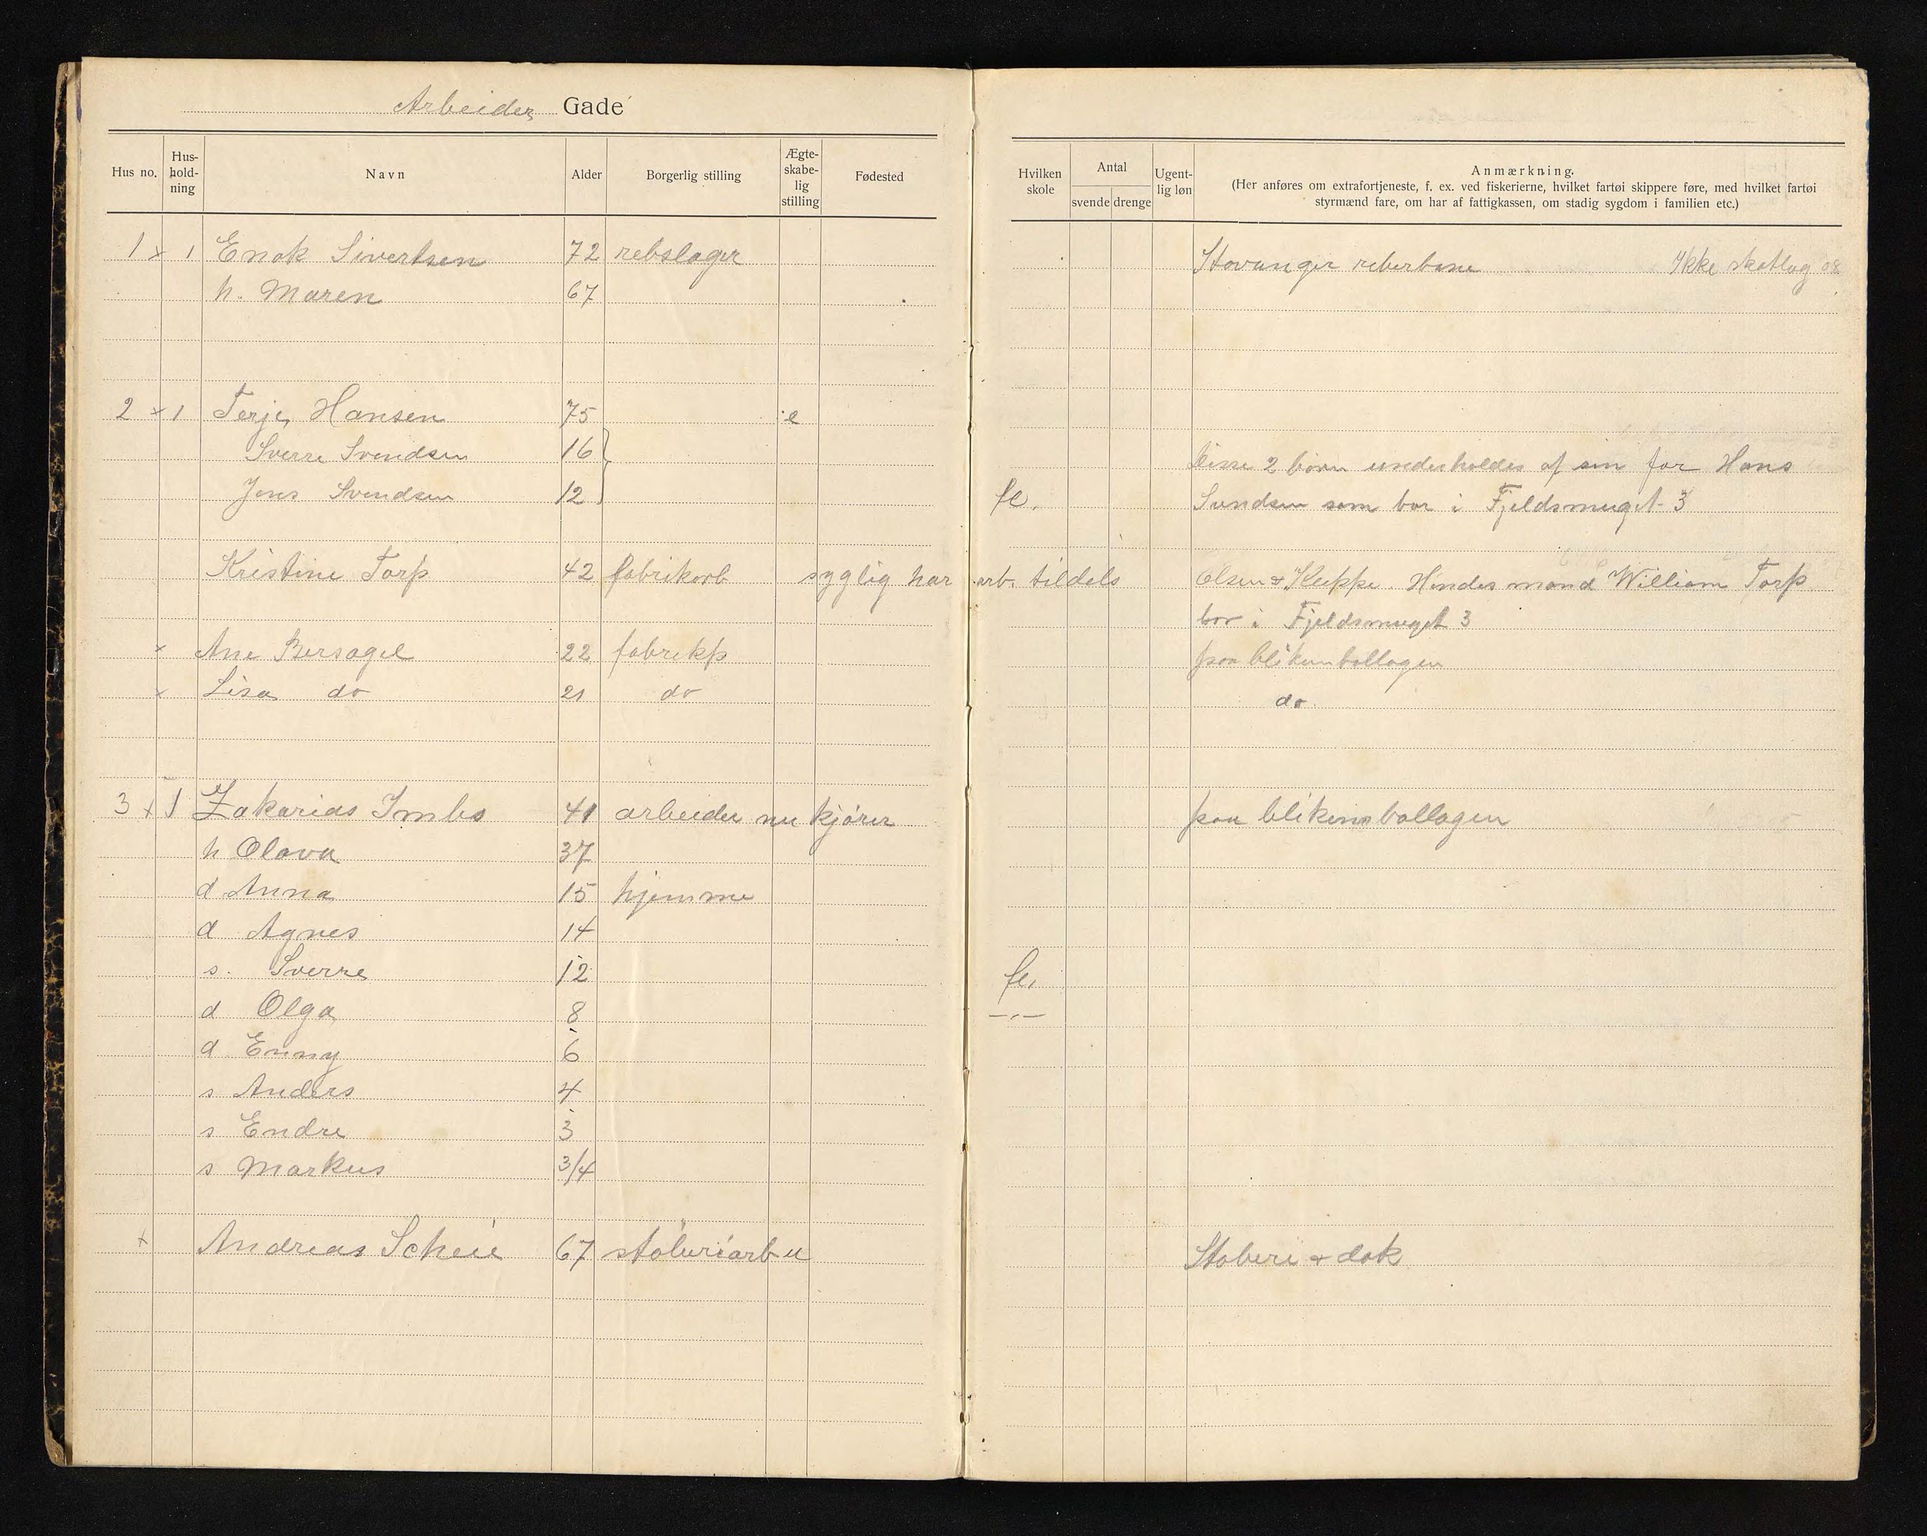 Arbeider Gade
Hus no. Hus-hold-ning Navn Alder Borgerlig stilling Ægte-skabe-lig stilling Fødested
Hvilken skole Antal svende drenge Ugent-lig løn Anmærkning.
(Her anføres om extrafortjeneste, f. ex. ved fiskerierne, hvilket fartøi skippere føre, med hvilket fartøi
styrmænd fare, om har af fattigkassen, om stadig sygdom i familien etc.)
1 x 1 Enok Sivertsen 72 rebslager Stavanger reberbane Ikke skatlag 08
h. Maren 67
2 x 1 Terje Hansen 75 e
Sverre Svendsen 16 Disse 2 børn underholdes af sin far Hans
Jens Svendsen 12 fl. Svendsen som bor i Fjeldsmuget 3
Kristine Torp 42 fabrikarb syglig har arb. tildels Olsen & Kleppe. Hendes mand William Torp
bor i Fjeldsmuget 3
x Ane Bersagel 22 fabrikp paa blikemballagen
x Lisa do 21 do do
3 x 1 Zakarias Imbs 41 arbeider nu kjører paa blikemballagen
h Olava 37
d Anna 15 hjemme
d Agnes 14
s. Sverre 12 fl.
d Olga 8 -"-
d Enny 6
s Anders 4
s Endre 3
s Markus 3/4
x Andreas Scheie 67 støberiarb u Støberi & dok